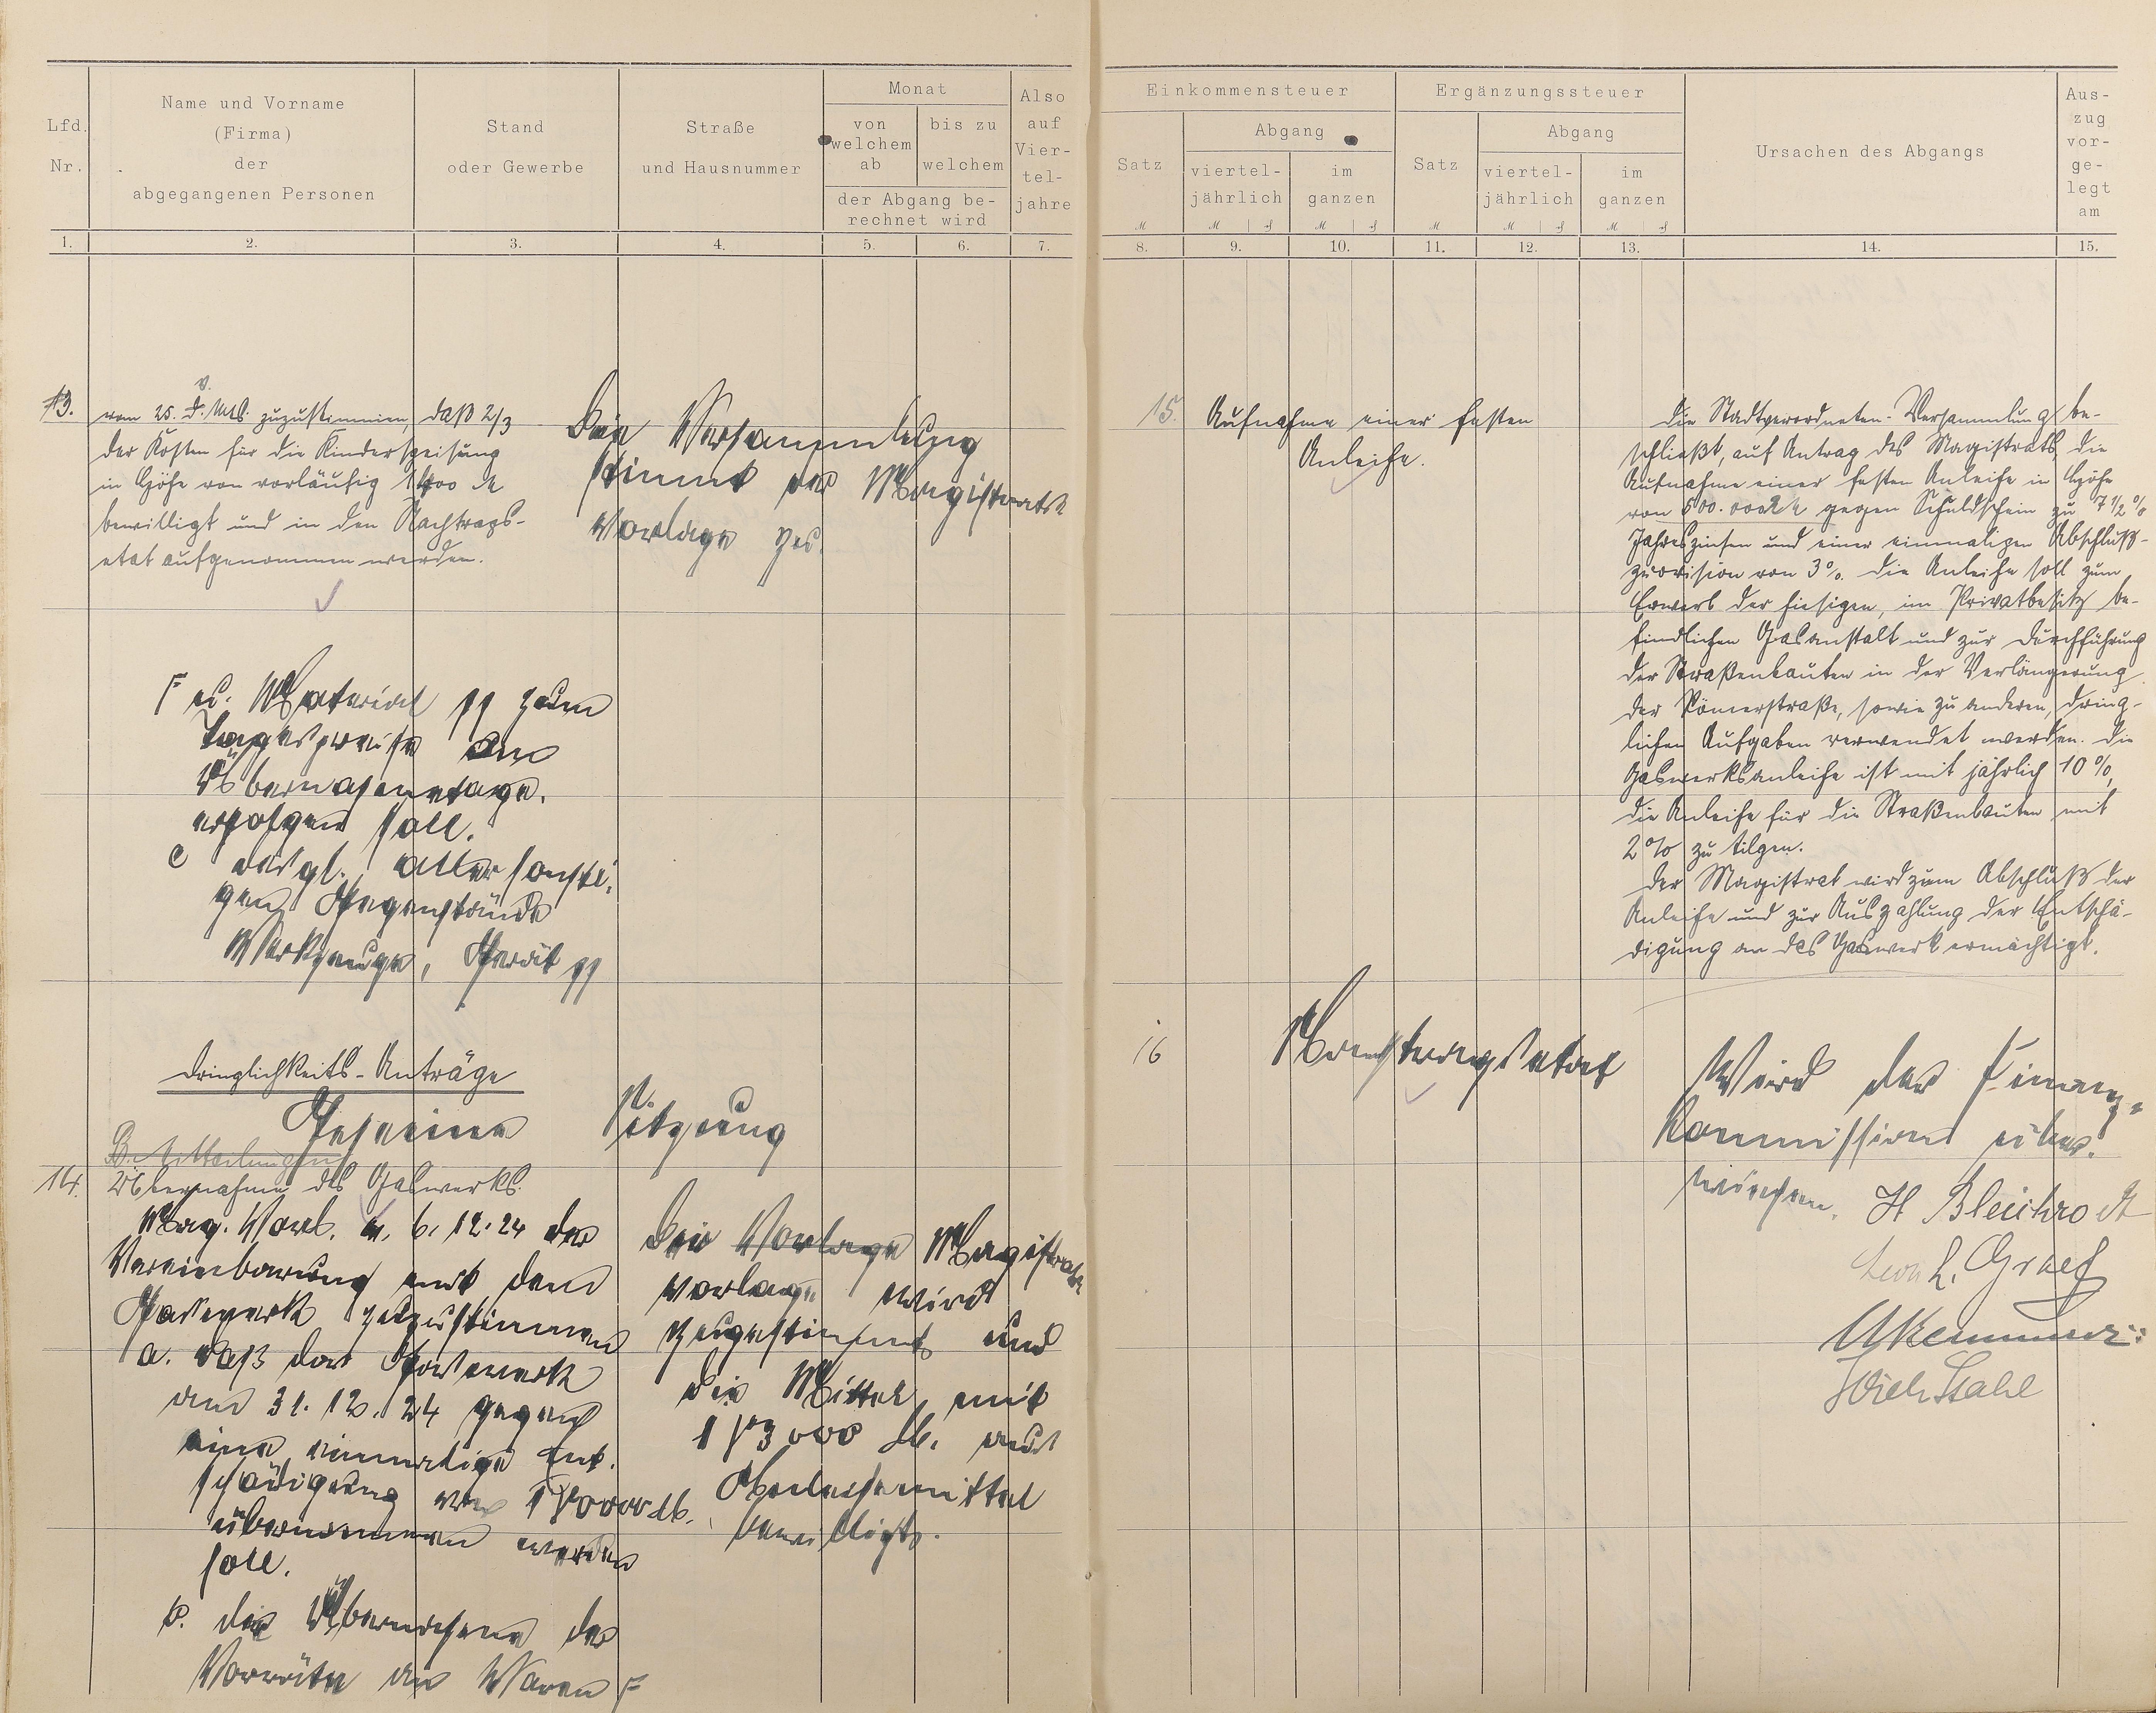 Lfd. Nr.
Name und Vorname
(Firma)
der
abgegangenen Personen
Stand
oder Gewerbe
Straße
und Hausnummer
Monat
von welchem ab
bis zu welchem
der Abgang be-
rechnet wird
Also auf Vier-tel-jahre
1. 2. 3. 4. 5. 6. 7.
13. vom 25. v. d. Mts. zuzustimmen, daß 2/3
der Kosten für die Kinderspeisung
in Höhe von vorläufig M
bewilligt und in den Nachtrags-
etat aufgenommen werden.
Die Versammlung
stimmt der Magistrats
vorlage zu.
F u. Material pp zum
Tagespreise am
Übernahmetage
erfolgen soll.
c desgl. aller sonsti-
gen Gegenstände
Werkzeuge, Gerät pp
Dringlichkeits-Anträge
Geheime Sitzung
B. Mitteilungen
14. Übernahme des Gaswerks.
Mag. Vorl. v. 6.12.24 der
Vereinbarung mit dem
Gaswerk zuzustimmen
a. daß das Gaswerk
am 31.12.24 gegen
eine einmalige Ent-
schädigung von M.
übernommen werden
soll.
b. die Übernahme der
Vorräte an Waren F
Die Vorlage Magistrats
vorlage wird
zugestimmt und
die Mittel mit
M. aus
Anleihemittel
bewilligt.
Einkommensteuer
Satz
Abgang
viertel-
jährlich
im
ganzen
Ergänzungssteuer
Satz
Abgang
viertel-
jährlich
im
ganzen
Ursachen des Abgangs
Aus-
zug
vor-
ge-
legt
am
8. 9. 10. 11. 12. 13. 14. 15.
15. Aufnahme einer festen
Anleihe.
Die Stadtverordneten-Versammlung be-
schließt, auf Antrag des Magistrats, die
Aufnahme einer festen Anleihe in Höhe
von 500.000 M gegen Schuldschein zu 7 1/2 %
Jahreszinsen und einer einmaligen Abschluß-
provision von 3%. Die Anleihe soll zum
Erwerb der hiesigen, im Privatbesitz be-
findlichen Gasanstalt und zur Durchführung
der Straßenbauten in der Verlängerung
der Römerstraße, sowie zu anderen, dring-
lichen Aufgaben verwendet werden. Die
Gaswerksanleihe ist mit jährlich 10%,
die Anleihe für die Straßenbauten mit
2% zu tilgen.
Der Magistrat wird zum Abschluß der
Anleihe und zur Auszahlung der Entschä-
digung an das Gaswerk ermächtigt.
16 Nachtragsetat
Wird der Finanz-
kommission über-
wiesen.
H Bleichrodt
Leonh. Graef